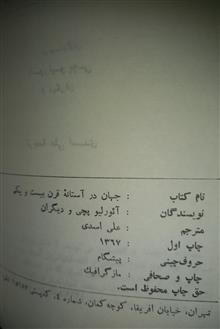 نام کتاب : جهان در آستانهٔ قرن بیست و یکم
نویسندگان : آئورلیو پچی و دیگران
مترجم : علی اسدی
چاپ اول : ۱۳۶۷
حروف‌چینی : پیشگام
چاپ و صحافی : مازگرافیک
حق چاپ محفوظ است.
تهران، خیابان افریقا، کوچه کمان، شماره ۴، کدپستی